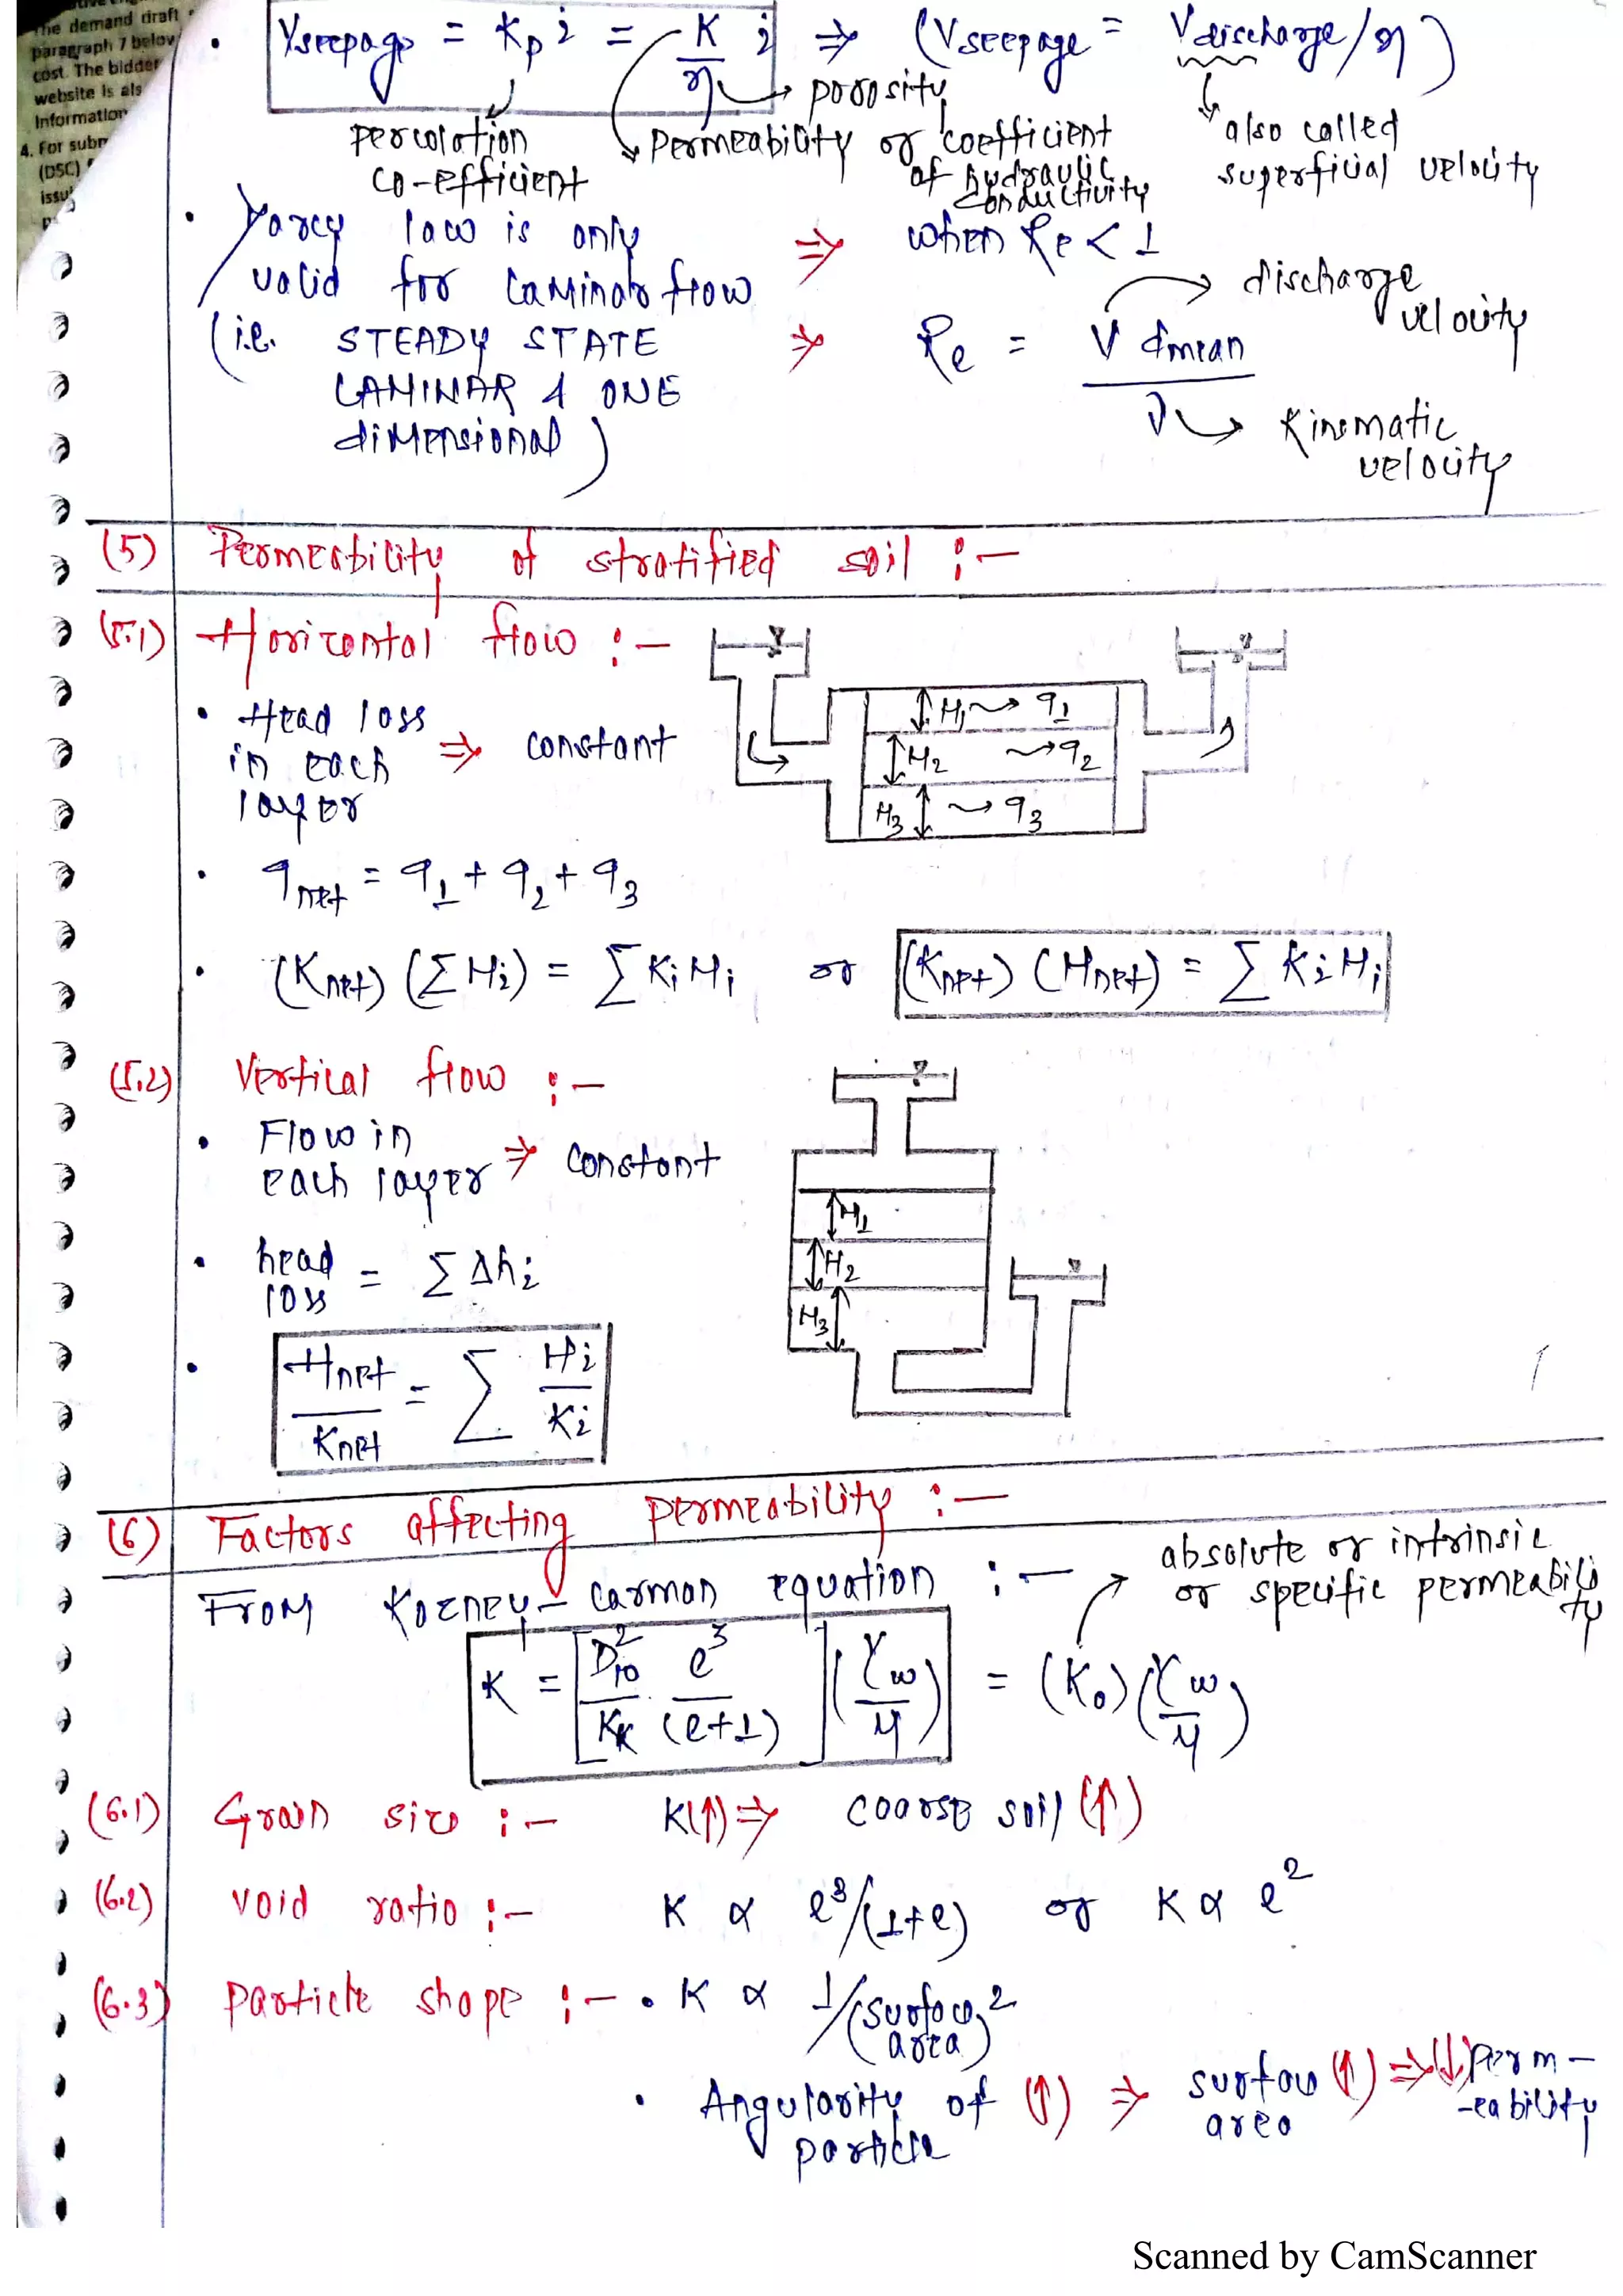 the demand draft
paragraph 7 below
cost. The bidder
website is als
Information
4. For subm
(DSC)
issu
• Vseepage = Kp i = K/η i ⇒ (Vseepage = Vdischarge/η)
percolation co-efficient
porosity
permeability or coefficient of hydraulic conductivity
also called superficial velocity
• Darcy law is only ⇒ when Re < 1
valid for laminar flow
(i.e. STEADY STATE LAMINAR & ONE dimensional)
⇒ Re = V dmean / ν
discharge velocity
Kinematic velocity
(5) Permeability of stratified soil :-
(5.1) Horizontal flow :-
• Head loss in each layer ⇒ constant
H1 → q1
H2 → q2
H3 → q3
• qnet = q1 + q2 + q3
• (Knet) (Σ Hi) = Σ Ki Hi or (Knet) (Hnet) = Σ Ki Hi
(5.2) Vertical flow :-
• Flow in each layer ⇒ constant
H1
H2
H3
• head loss = Σ Δhi
• Hnet/Knet = Σ Hi/Ki
(6) Factors affecting permeability :-
From Kozney-Carman equation :-
absolute or intrinsic or specific permeability
K = [D10² / KK · e³ / (e+1)] (γw/μ) = (K0) (γw/μ)
(6.1) Grain size :- K(↑) ⇒ coarse soil (↑)
(6.2) void ratio :- K ∝ e³/(1+e) or K ∝ e²
(6.3) Particle shape :- • K ∝ 1/(surface area)²
• Angularity of particle (↑) ⇒ surface area (↑) ⇒ (↓) perm-eability
Scanned by CamScanner